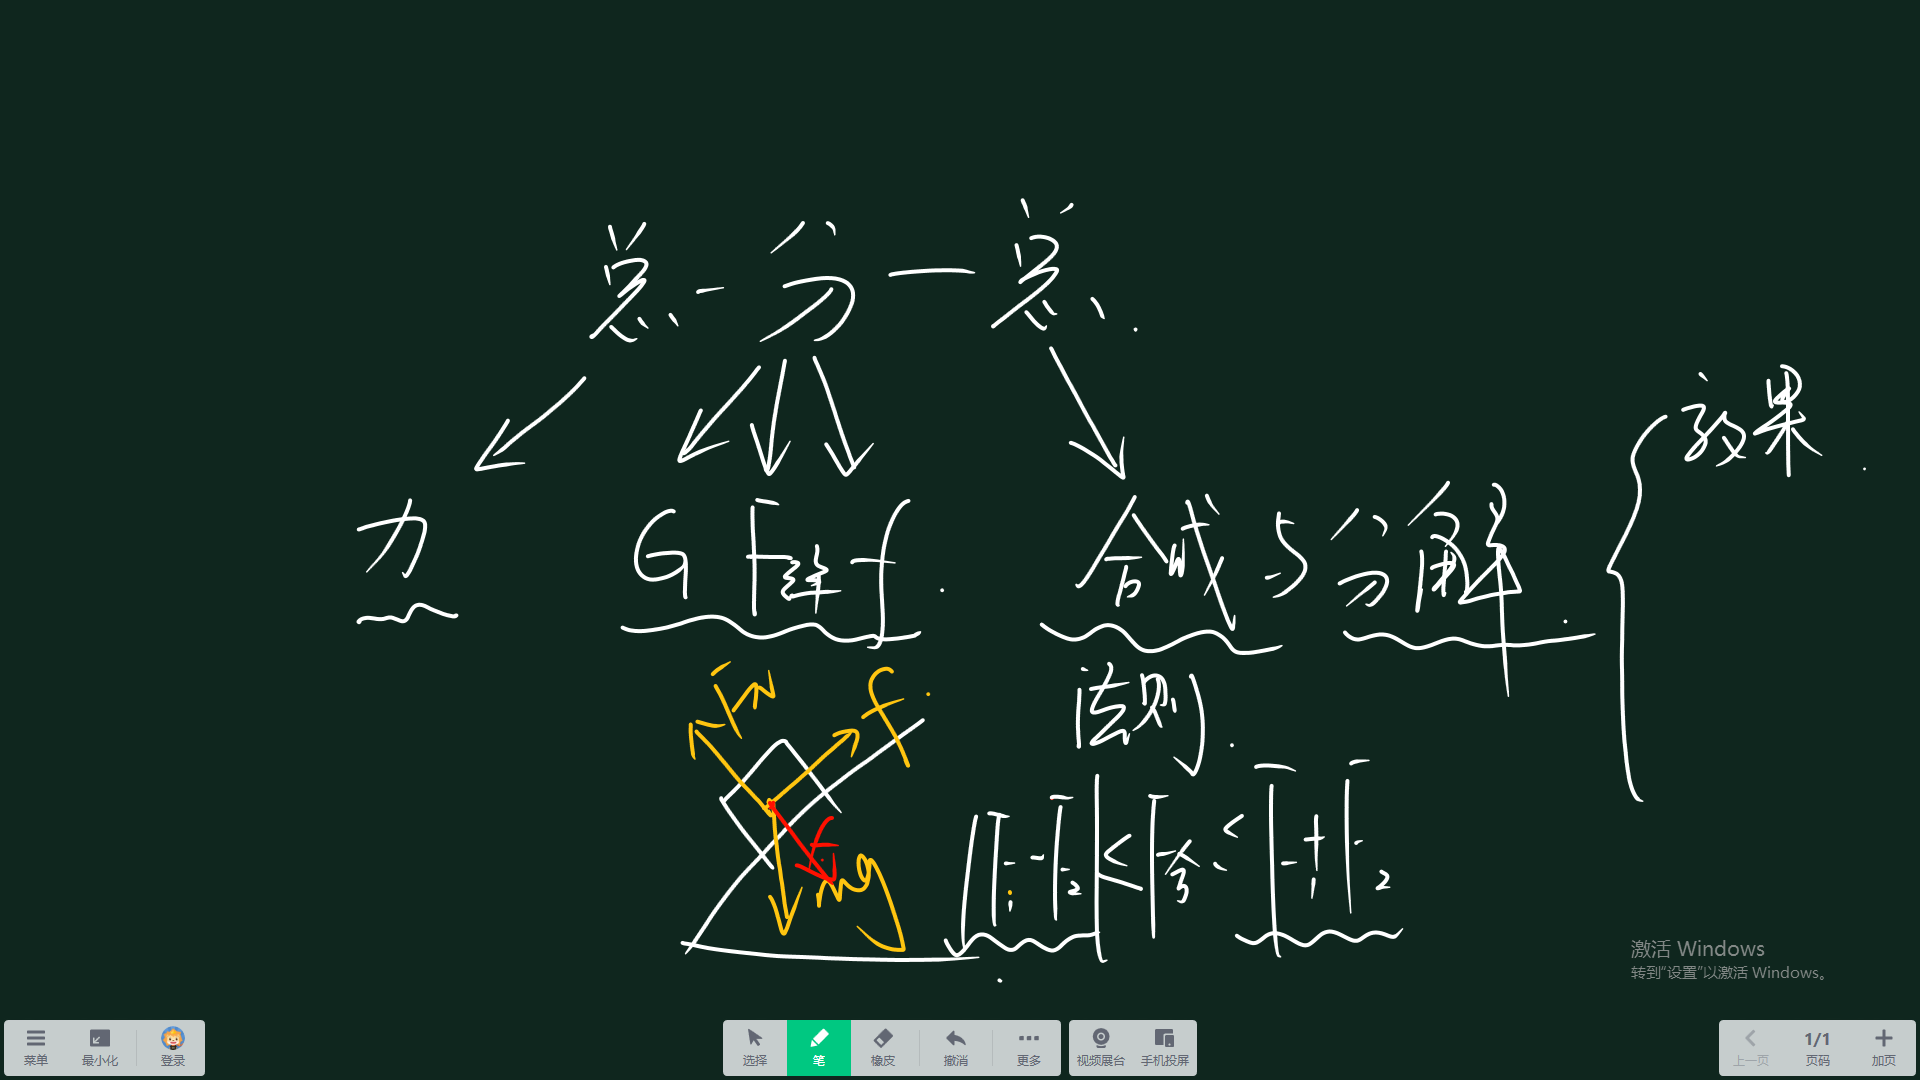 总-分一总.
效果.
力 G F弹 f. 合成与分解.
FN f.
法则.
F
mg
|F1-F2|<F合<|F1+F2
激活 Windows
转到“设置”以激活 Windows。
菜单 最小化 登录 选择 笔 橡皮 撤消 更多 视频展台 手机投屏 上一页 1/1 页码 加页